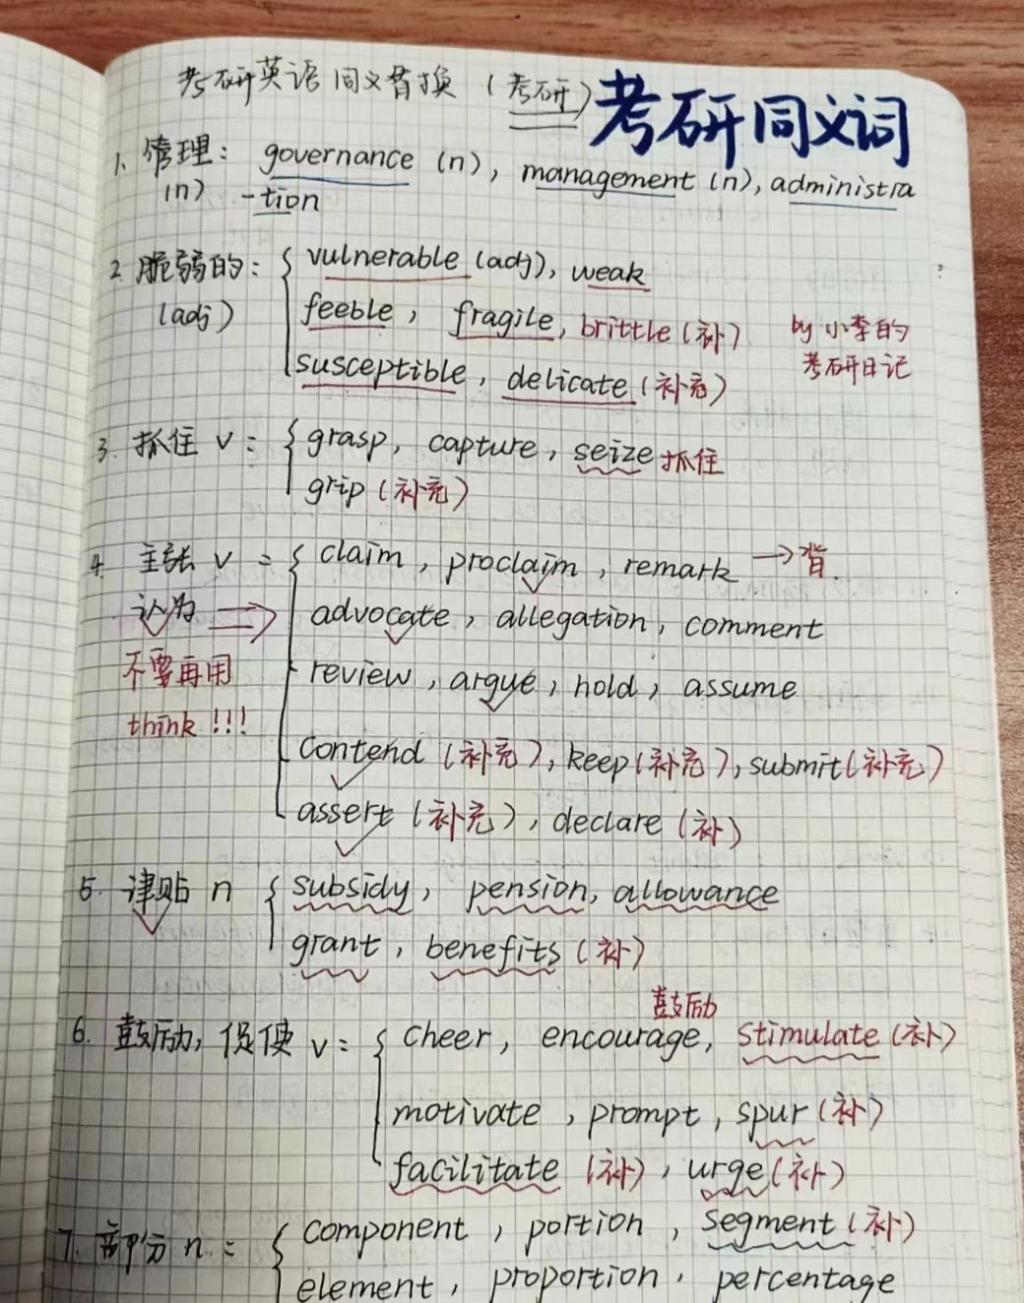 考研英语同义替换（考研）
考研同义词
1. 管理：governance (n), management (n), administra
(n) -tion
2. 脆弱的：{ vulnerable (adj), weak
(adj) feeble, fragile, brittle (补)
by 小李的
考研日记
susceptible, delicate (补充)
3. 抓住 v：{ grasp, capture, seize 抓住
grip (补充)
4. 主张 v = { claim, proclaim, remark → 背.
认为 ⇒ advocate, allegation, comment
不要再用 review, argue, hold, assume
think !!!
contend (补充), keep (补充), submit (补充)
assert (补充), declare (补)
5. 津贴 n { subsidy, pension, allowance
grant, benefits (补)
鼓励
6. 鼓励, 促使 v = { cheer, encourage, stimulate (补)
motivate, prompt, spur (补)
facilitate (补), urge (补)
7. 部分 n = { component, portion, segment (补)
element, proportion, percentage